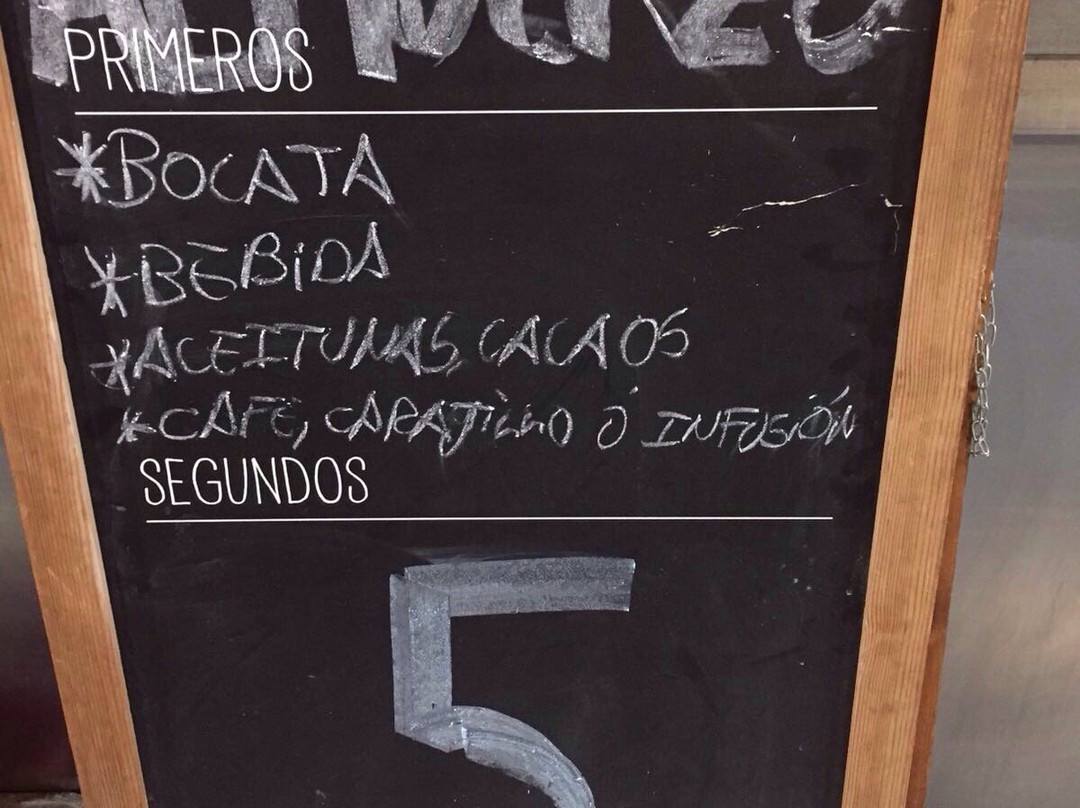 Almuerzo
PRIMEROS
*BOCATA
*BEBIDA
*ACEITUNAS, CACAOS
*CAFÉ, CARAJILLO Ó INFUSIÓN
SEGUNDOS
5